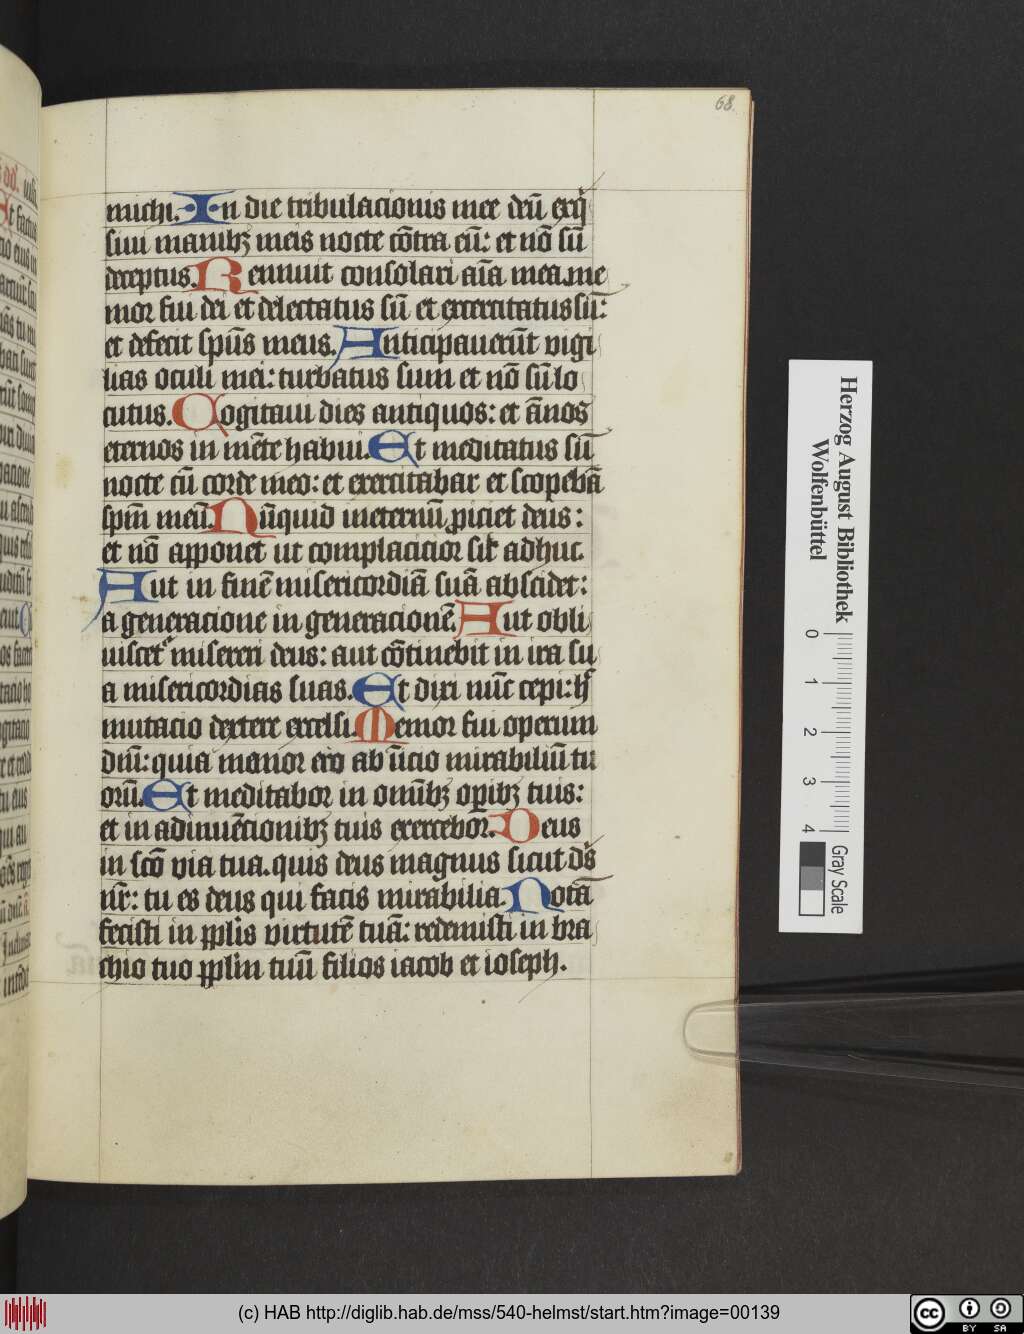 68
michi. In die tribulacionis mee deū exq̄
siui manibꝫ meis nocte cōtra eū: et nō sū
deceptus. Rennuit consolari aīa mea. me
mor fui dei et delectatus sū et exercitatus sū:
et defecit spūs meus. Anticipauerūt vigi
lias oculi mei: turbatus sum et nō sū lo
cutus. Cogitaui dies antiquos: et ānos
eternos in mēte habui. Et meditatus sū
nocte cū corde meo: et exercitabar et scopebā
spm̄ meū. Nūquid ineternū ꝓiciet deus:
et nō apponet ut complacicior sit adhuc.
Aut in finē misericordiā suā abscidet:
a generacione in generacionē. Aut obli
uiscet᷑ misereri deus: aut cōtinebit in ira su
a misericordias suas. Et dixi nūc cepi: h̄
mutacio dextere excelsi. Memor fui operum
dnī: quia memor ero ab īicio mirabiliū tu
orū. Et meditabor in omībꝫ oꝑibꝫ tuis:
et in adinuēcionibꝫ tuis exercebor. Deus
in scō via tua. quis deus magnus sicut ds̄
nr̄: tu es deus qui facis mirabilia. Notā
fecisti in pplīs virtutē tuā: redemisti in bra
chio tuo pplm̄ tuū filios iacob et ioseph.
Herzog August Bibliothek
Wolfenbüttel
0 1 2 3 4
Gray Scale
(c) HAB http://diglib.hab.de/mss/540-helmst/start.htm?image=00139
cc BY SA